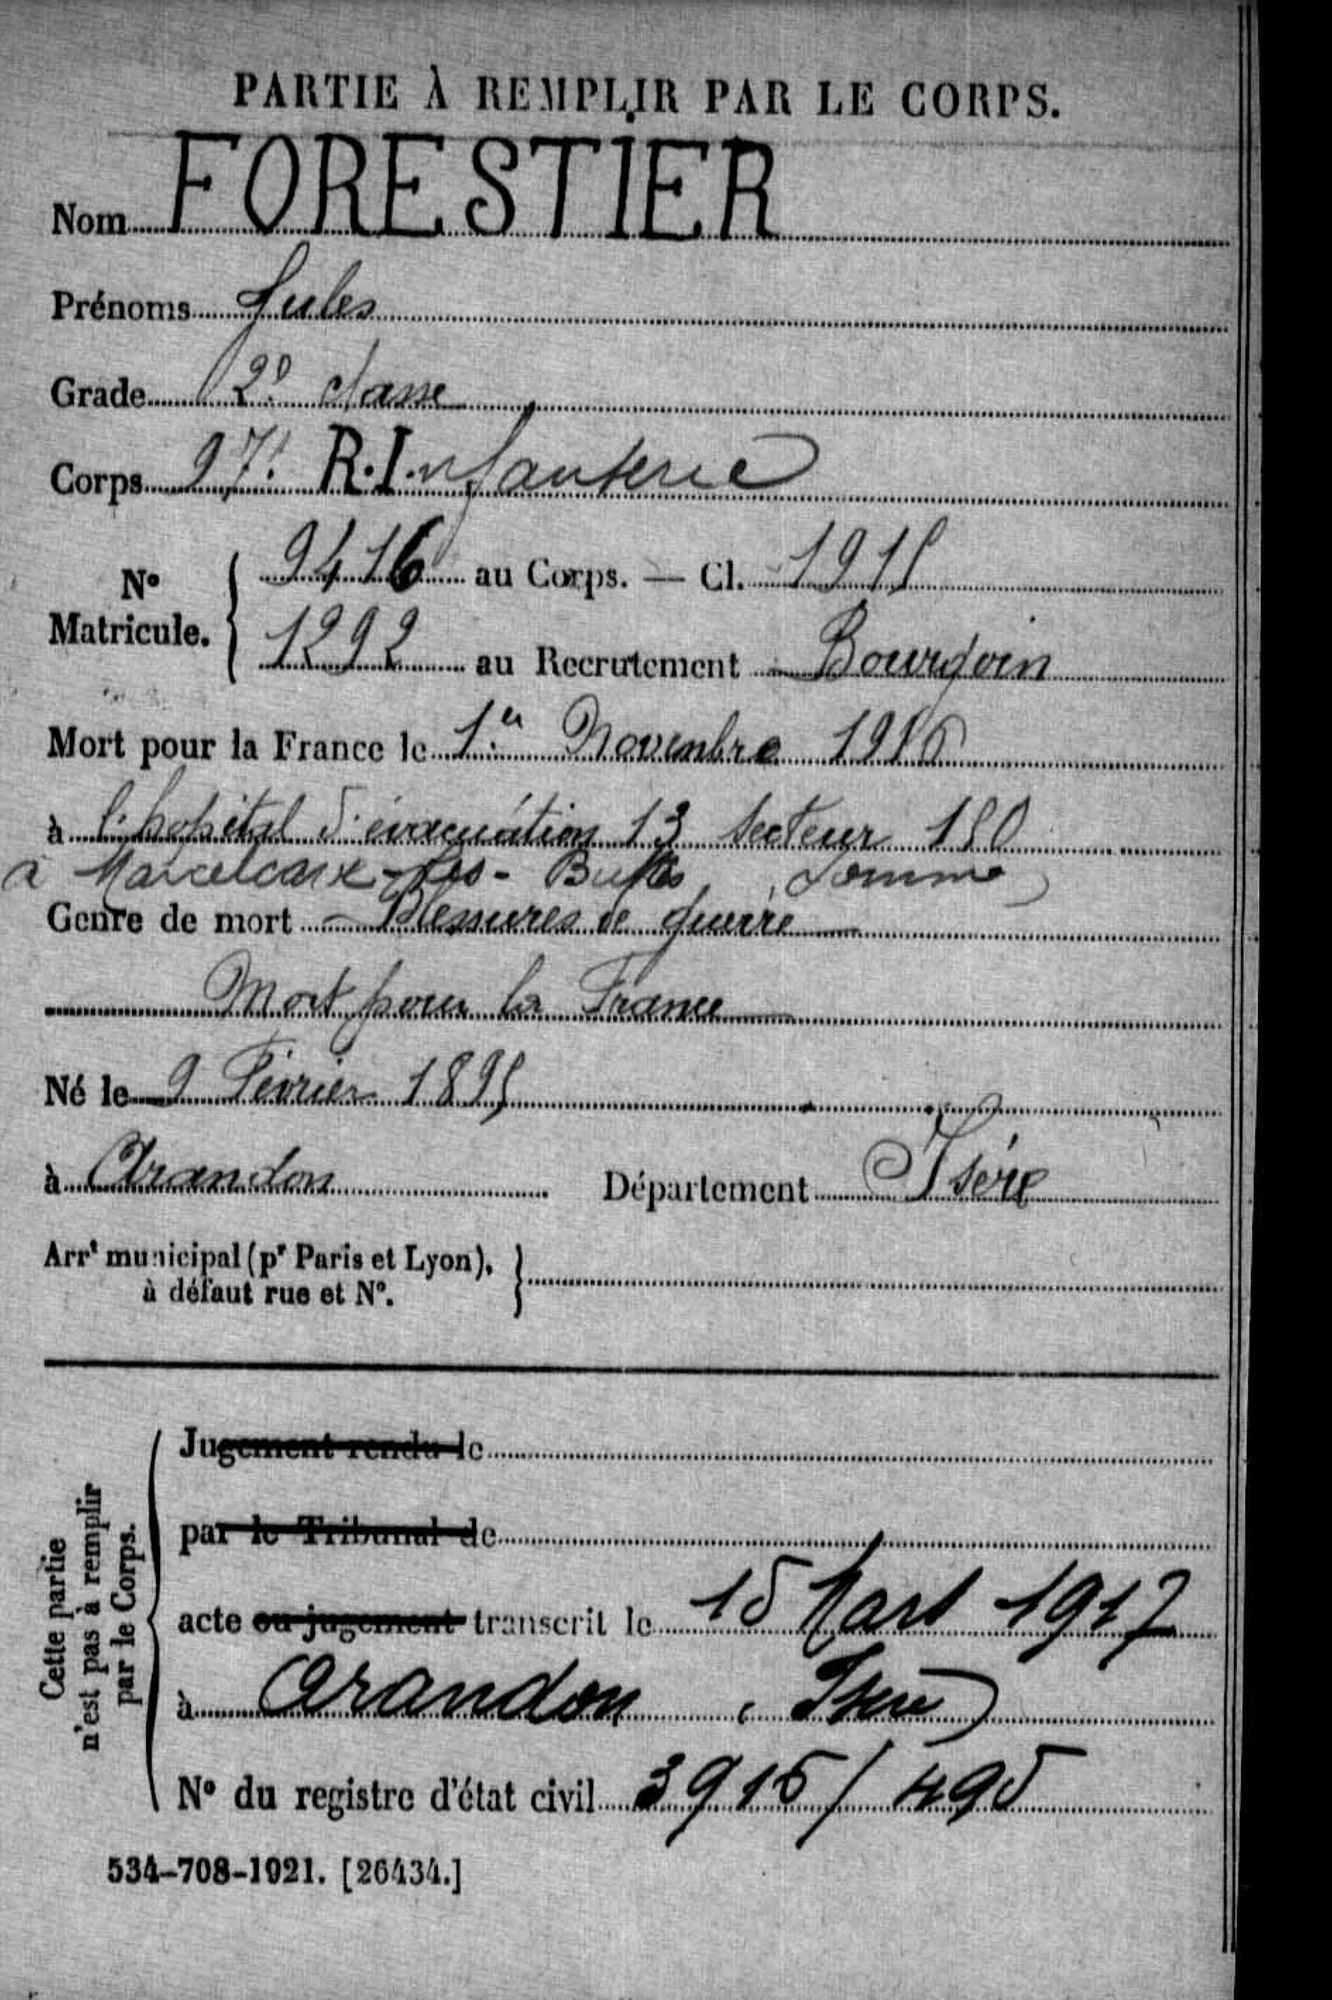 PARTIE À REMPLIR PAR LE CORPS.
Nom FORESTIER
Prénoms Jules
Grade 2e classe
Corps 97e R.Infanterie
N° Matricule. 9416 au Corps. — Cl. 1915
1292 au Recrutement Bourgoin
Mort pour la France le 1er Novembre 1916
à l'hopital d'évacuation 13 secteur 150
à Marcelcave-les-Buttes, Somme)
Genre de mort Blessures de guerre
Mort pour la France
Né le 9 Février 1895
à Arandon Département Isère
Arrt municipal (pr Paris et Lyon),
à défaut rue et N°.
Cette partie
n'est pas à remplir
par le Corps.
Jugement rendu le
par le Tribunal de
acte ou jugement transcrit le 15 Mars 1917
à Arandon (Isère)
N° du registre d'état civil 3915/495
534-708-1921. [26434.]